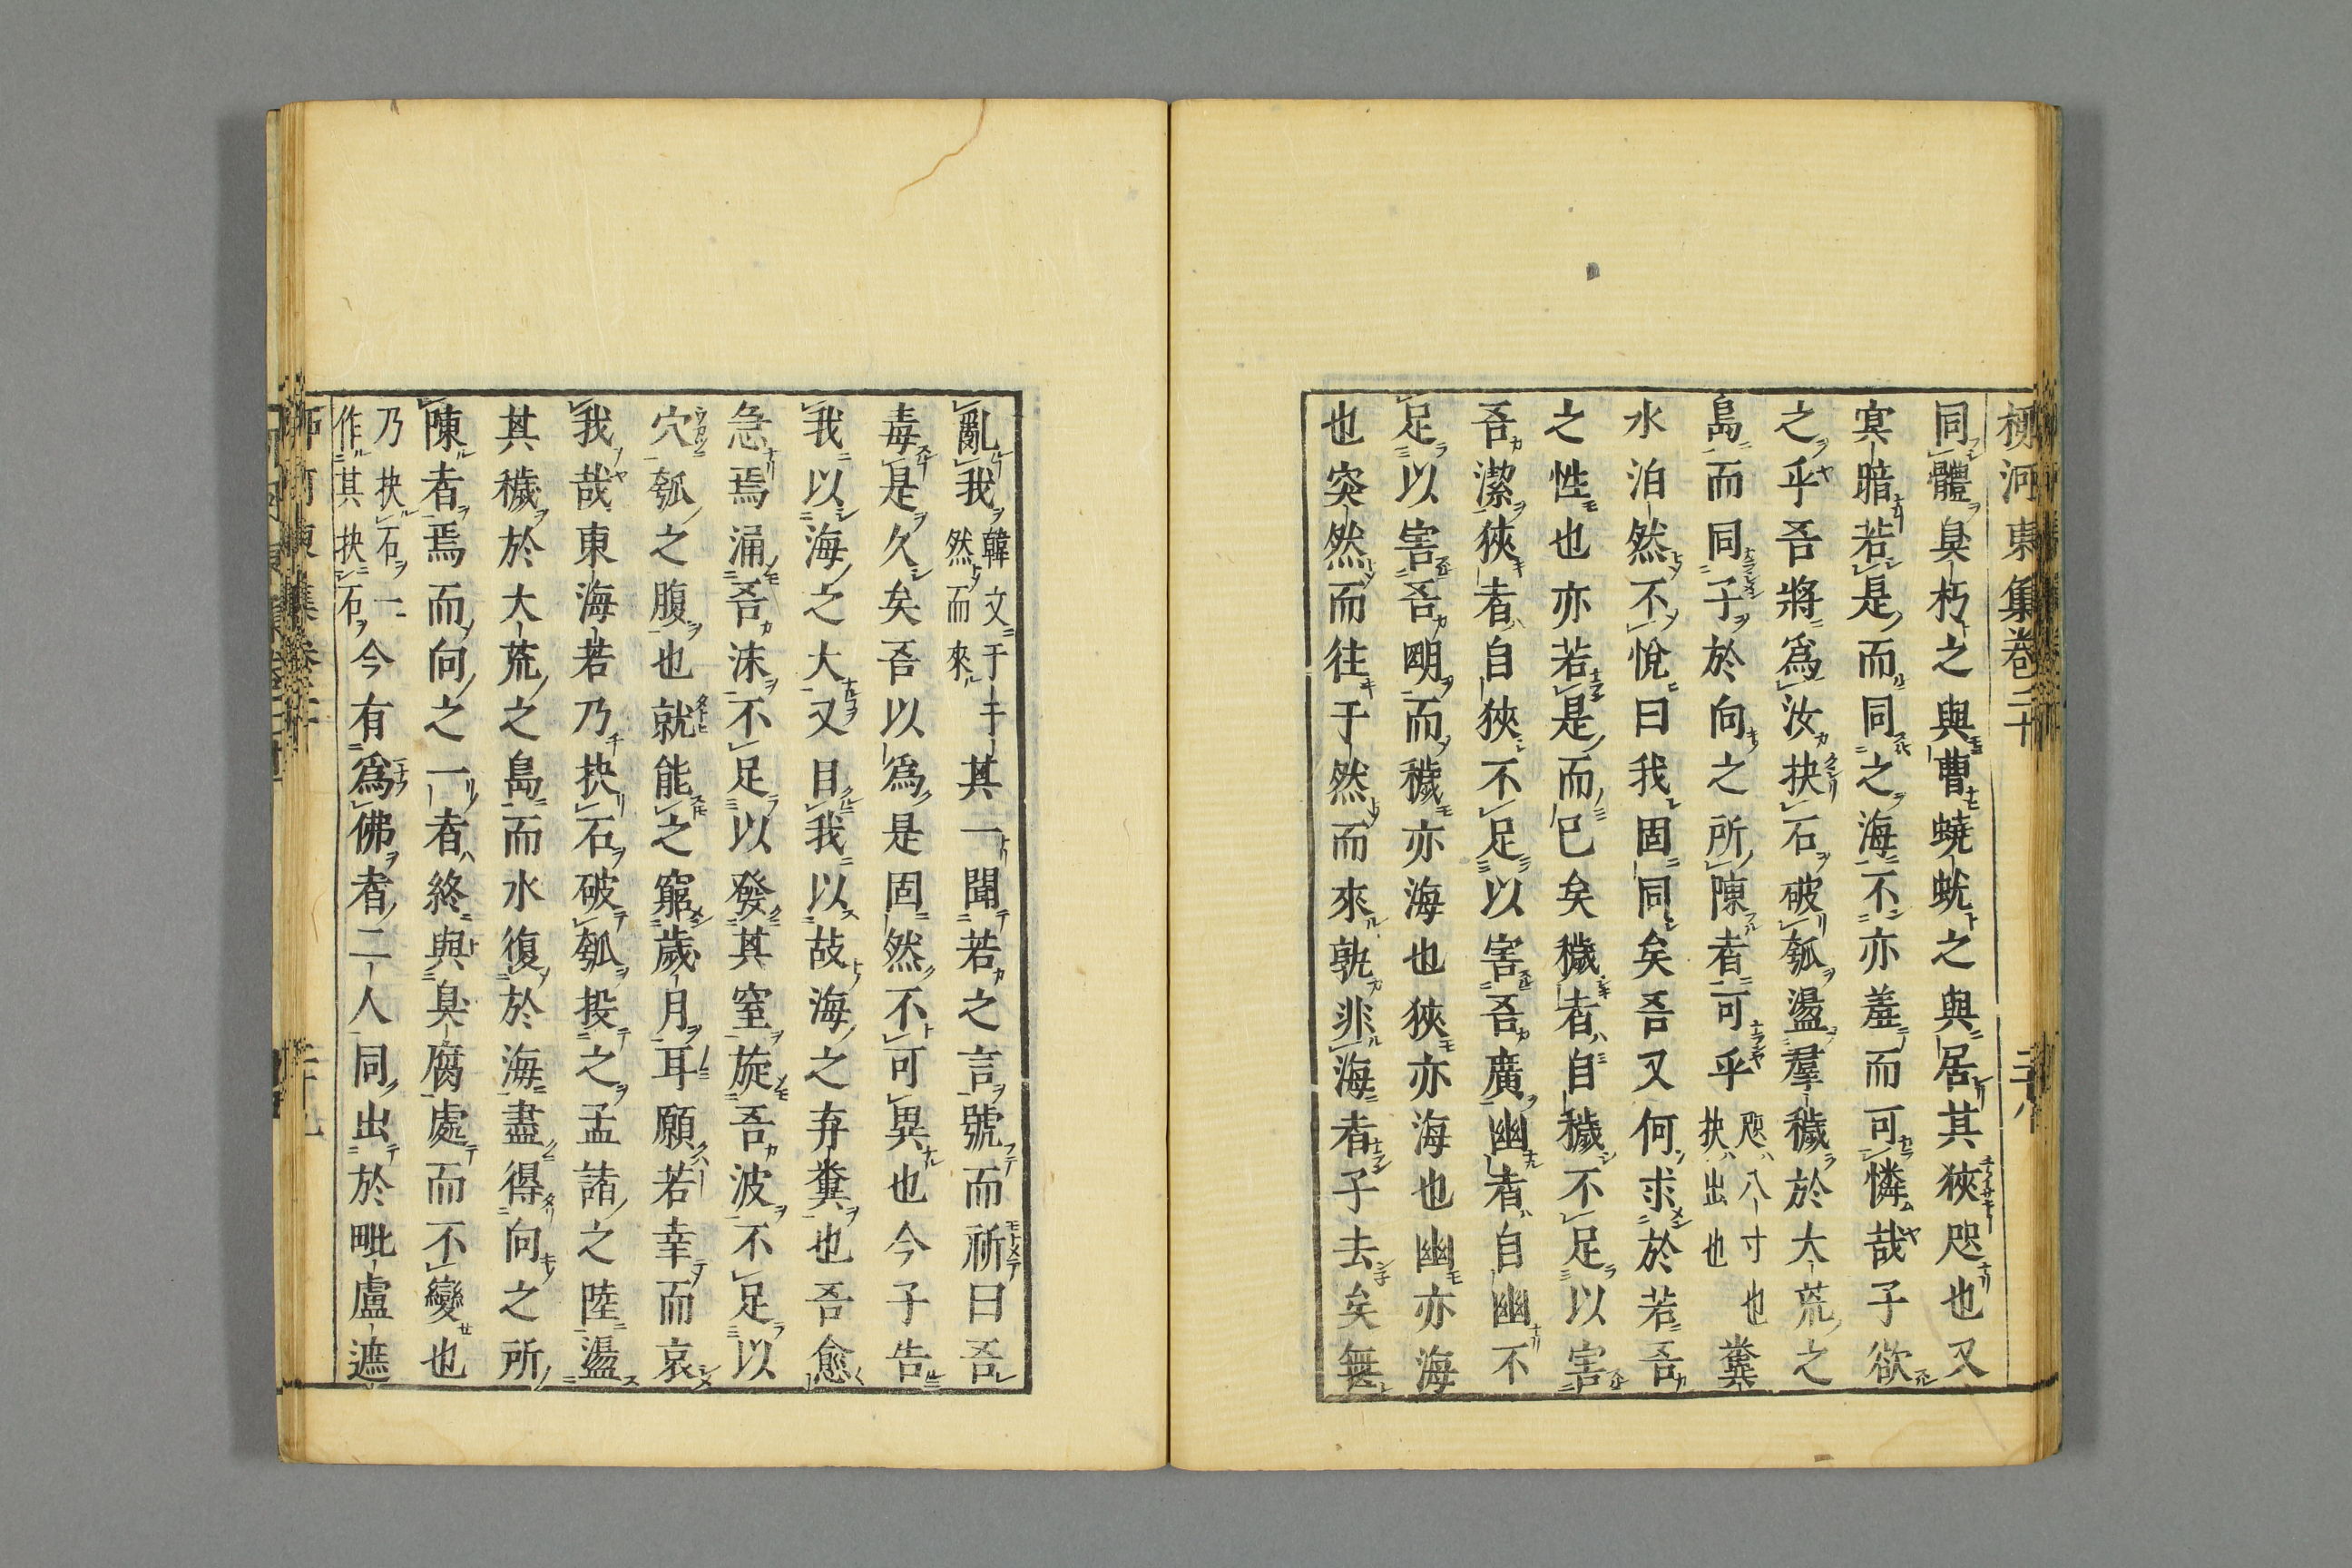 柳河東集卷二十 二八
同體臭朽之與曹蟯蚘之與居其狹咫也又
冥暗若是而同之海不亦羞而可憐哉子欲
之乎吾將爲汝抉石破瓠盪羣穢於大荒之
島而同子於向之所陳者可乎咫八寸也抉出也糞
水泊然不悅曰我固同矣吾又何求於若吾
之性也亦若是而已矣穢者自穢不足以害
吾潔狹者自狹不足以害吾廣幽者自幽不
足以害吾明而穢亦海也狹亦海也幽亦海
也突然而往于然而來孰非海者子去矣無
亂我韓文于于然而來其一聞若之言號而祈曰吾
毒是久矣吾以爲是固然不可異也今子告
我以海之大又目我以故海之弃糞也吾愈
急焉涌吾沫不足以發其窒旋吾波不足以
穴瓠之腹也就能之窮歲月耳願若幸而哀
我哉東海若乃抉石破瓠投之孟諸之陸盪
其穢於大荒之島而水復於海盡得向之所
陳者焉而向之一者終與臭腐處而不變也
乃抉石一作其抉石今有爲佛者二人同出於毗盧遮